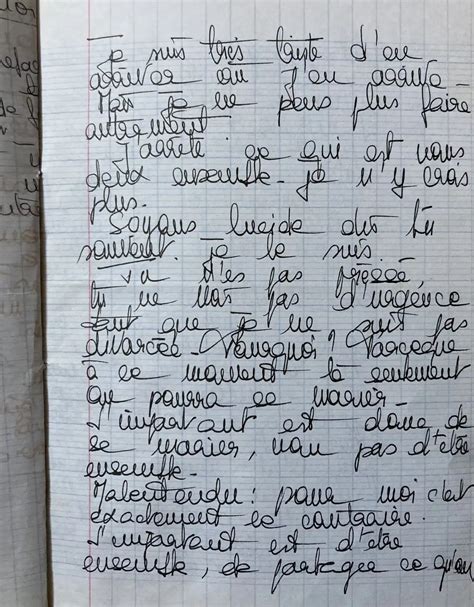 Je suis très triste d'en
arriver où j'en arrive.
Mais je ne peux plus faire
autrement.
J'arrête ce qui est nous
deux ensemble. Je n'y crois
plus.
Soyons lucide dis tu
souvent. Je le suis.
T'es pas pressé
tu ne vois pas d'urgence
tant que je ne suis pas
divorcée. Pourquoi? Parceque
à ce moment là seulement
on pourra se marier.
L'important est donc de
se marier, non pas d'être
ensemble.
Malentendu: pour moi c'est
exactement le contraire.
L'important est d'être
ensemble, de partager ce qu'on